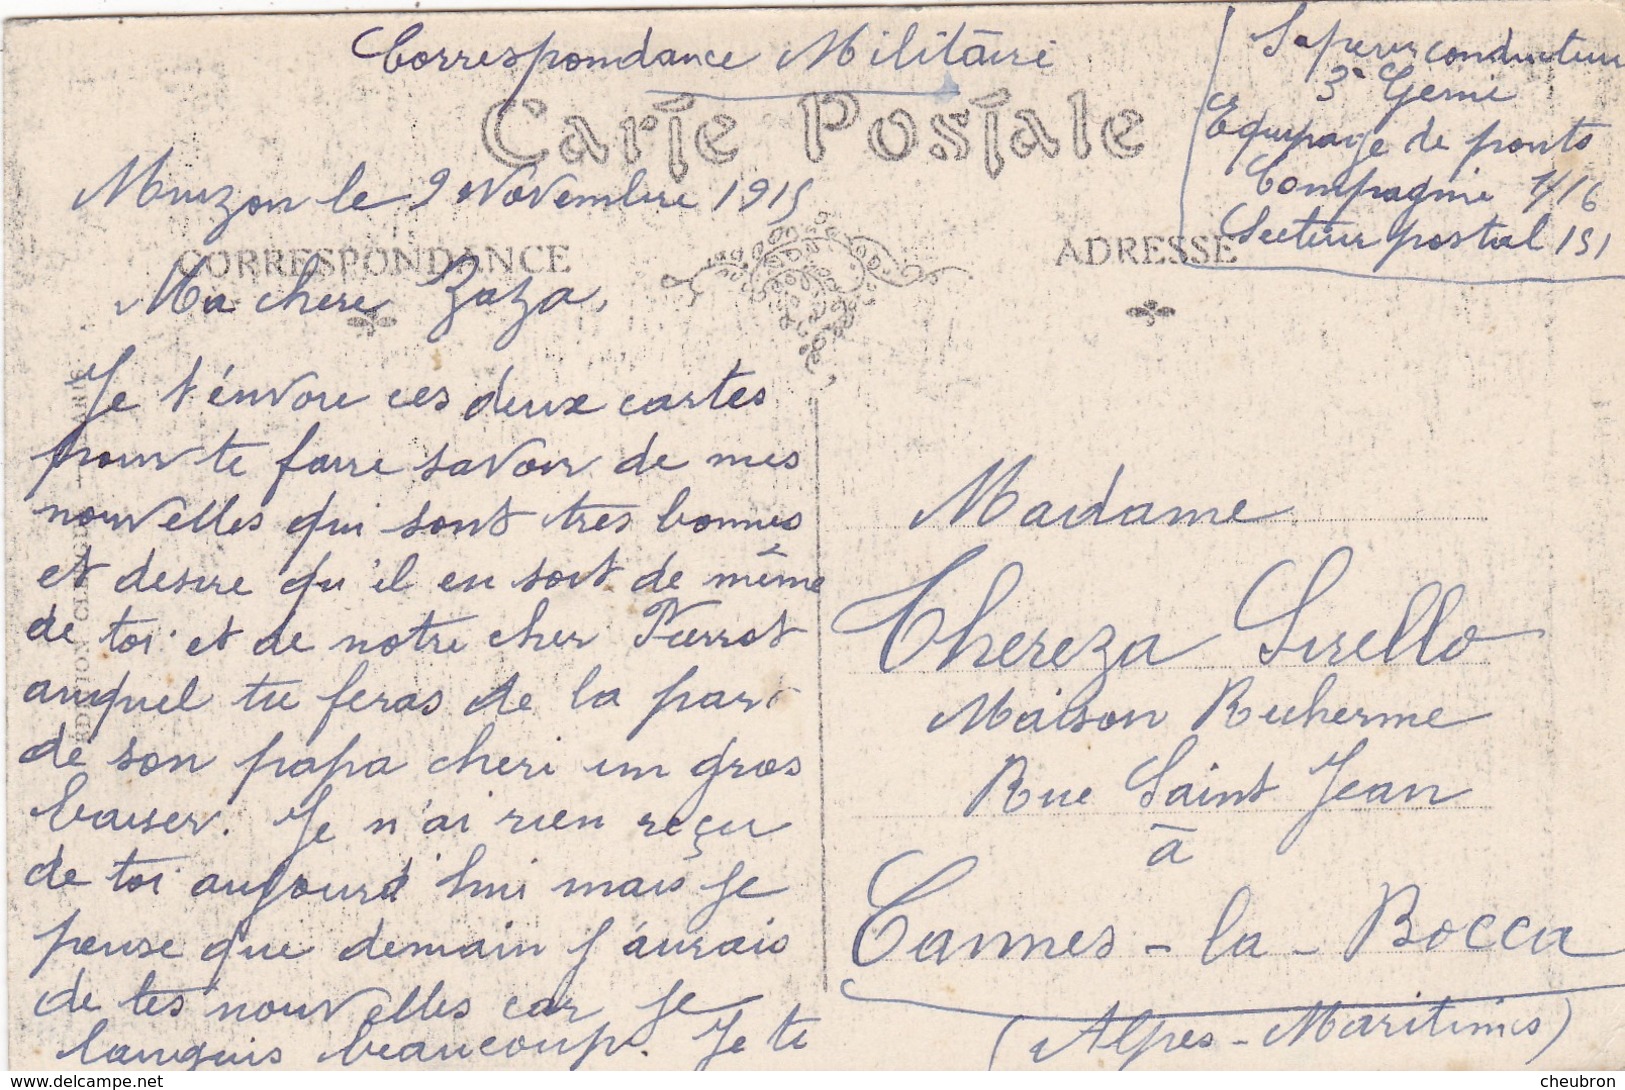 Correspondance Militaire
Carte Postale
Sapeur conducteur
3e Genie
Equipage de ponts
Compagnie 7/16
Secteur postal 151
Muizon le 9 Novembre 1915
CORRESPONDANCE
ADRESSE
Ma chere Zaza,
Je t'énvoie ces deux cartes
pour te faire savoir de mes
nouvelles qui sont tres bonnes
et desire qu'il en soit de même
de toi et de notre cher Pierrot
auquel tu feras de la part
de son papa cheri un gros
baiser. Je n'ai rien reçu
de toi aujourd'hui mais je
pense que demain j'aurais
de tes nouvelles car je
languis beaucoup. Je te
Madame
Thereza Sirello
Maison Rucherme
Rue Saint Jean
à
Cannes-la-Bocca
(Alpes-Maritimes)
EDITION
cheubron@delcampe.net